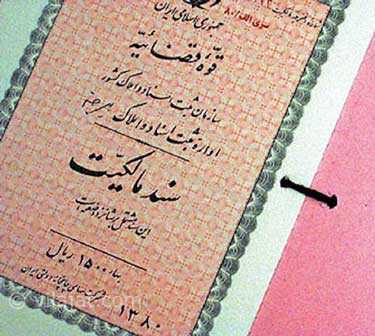 جمهوری اسلامی ایران
قوه قضائیه
سازمان ثبت اسناد و املاک کشور
اداره ثبت اسناد و املاک
سند مالکیت
این سند مشتمل بر شانزده صفحه است
بها: ۱۵۰۰ ریال
۱۳۸۰